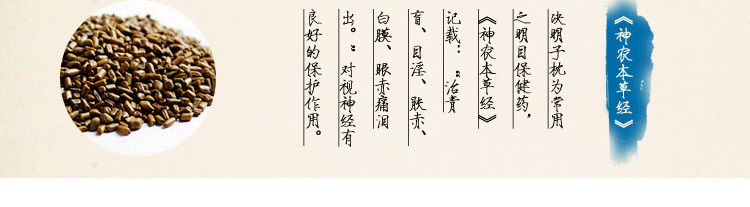 《神农本草经》
决明子枕为常用
之明目保健药，
《神农本草经》
记载：“治青
盲、目淫、肤赤、
白膜、眼赤痛泪
出。”对视神经有
良好的保护作用。